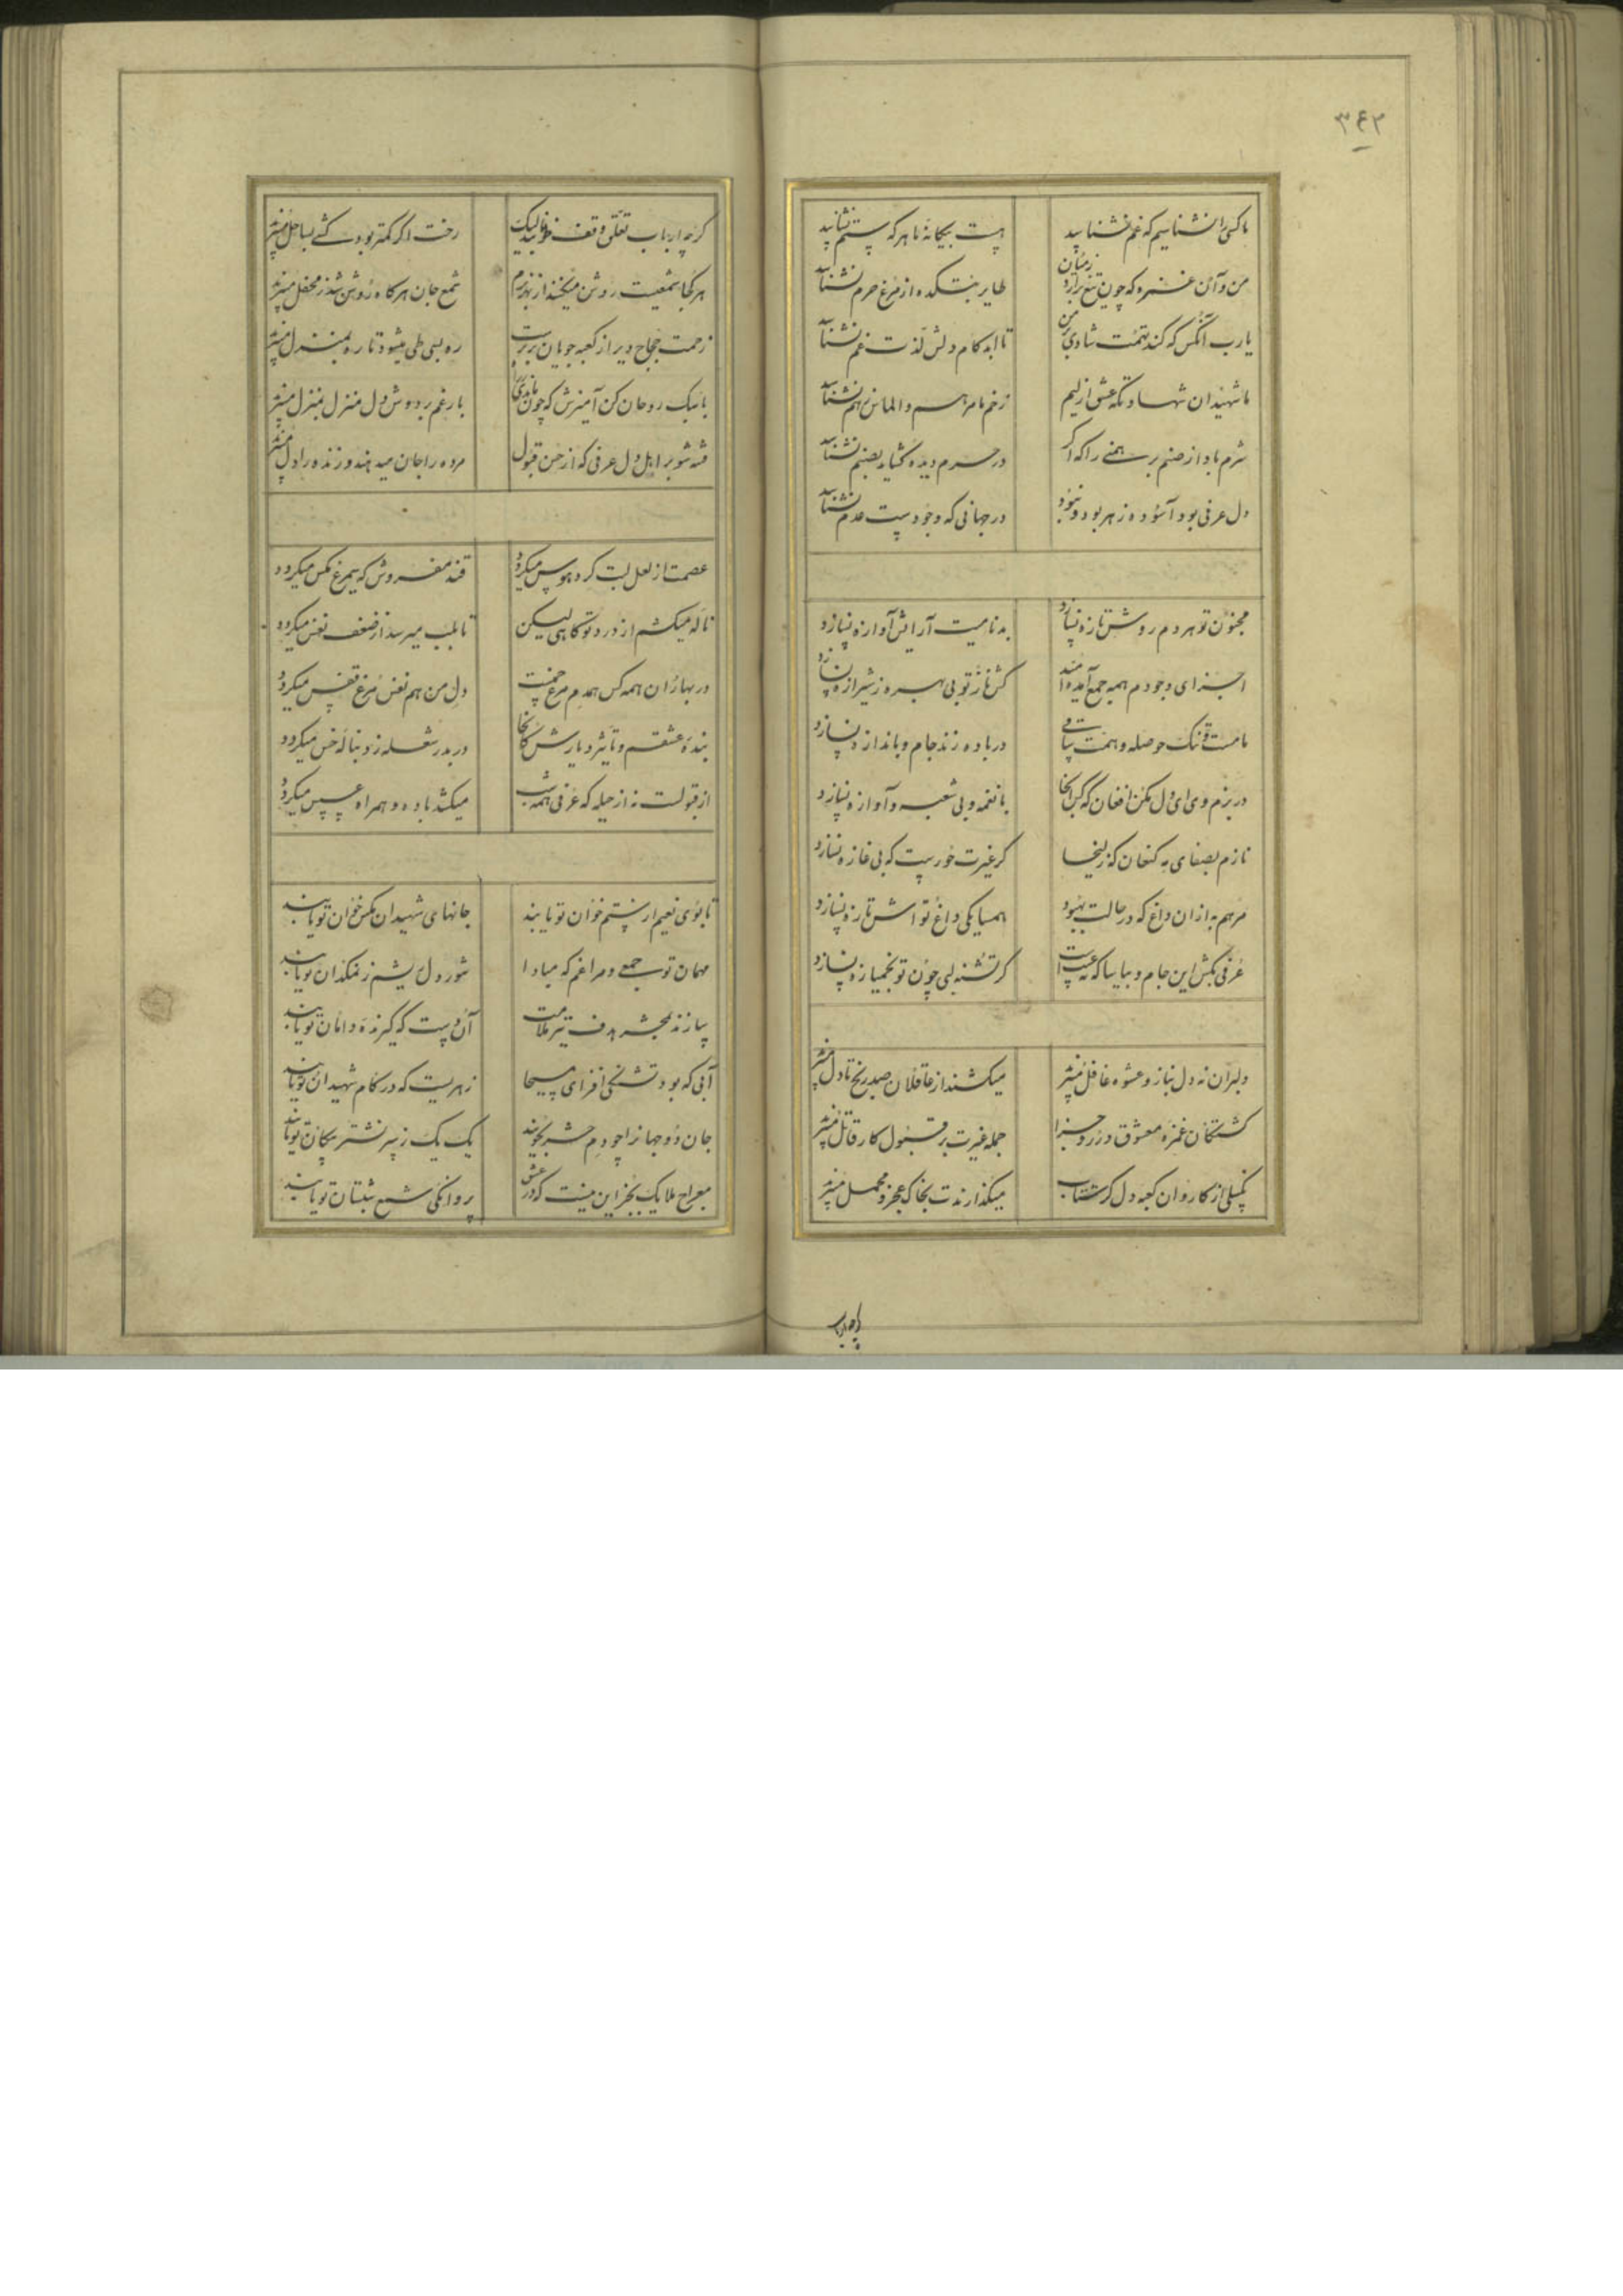 ۳۶۲
ما کسی را نشناسیم که غم نشناسد
هست بیگانه ما هر که ستم نشناسد
من و آن غمزه که چون تیغ برآرد ز میان
طایر بتکده از مرغ حرم نشناسد
یارب آنکس که کند تهمت شادی بر من
تا ابد کام دلش لذت غم نشناسد
ما شهیدان شهادتگه عشق ازلیم
زخم ما مرهم و الماس ز هم نشناسد
شرم باد از صنم برهمنی را که اگر
در حرم دیده گشاید بصنم نشناسد
دل عرفی بود آسوده ز هر بود و نبود
در جهانی که وجودست عدم نشناسد
مجنون تو هر دم روش تازه نسازد
بدنامیت آرایش آوازه نسازد
اجزای وجودم همه جمع آمده‌اند
کش ناز تو بی بهره ز شیرازه نسازد
ما مست تنک حوصله و همت ساقی
در باده زند جام و باندازه نسازد
در بزم وی ای دل مکن افغان که کس آنجا
با نغمه و بی شعبه و آوازه نسازد
نازم بصفای مه کنعان که زلیخا
گر غیرت حورست که بی غازه نسازد
مرهم به از ان داغ که در حالت بهبود
همسایگی داغ تو اش تازه نسازد
عرفی بکش این جام و بیا بیا که عیب است
گر تشنه لبی چون تو بخمیازه نسازد
دلبران نه دل بناز و عشوه غافل میبرند
میکشند از عاقلان صد رنج تا دل میبرند
کشتگان غمزه معشوق در روز جزا
جمله غیرت بر قبول کار قاتل میبرند
بگسلی از کاروان کعبه دل گر شتاب
میگذارندت بجا که عجز و محمل میبرند
گرچه ارباب تعلق وقف طوفانند لیک
رخت اگر کمتر بود کشتی بساحل میبرند
هر کجا شمعیست روشن میکنند از بهر بزم
شمع جان هر گاه روشن شد ز محفل میبرند
زحمت حجاج دیر از کعبه جویان برترست
ره بسی طی میشود تا ره بمنزل میبرند
با سبک روحان کن آمیزش که چون
بار غم بر دوش دل منزل بمنزل میبرند
فتنه شو بر اهل دل عرفی که از حسن قبول
مرده را جان میدهند و زنده را دل میبرند
عصمت از لعل لبت گرد هوس میگردد
قند مفروش که سیمرغ مگس میگردد
ناله میکشم از درد تو گاهی لیکن
تا بلب میرسد از ضعف نفس میگردد
در بهاران همه کس همدم مرغ چمنست
دل من هم نفس مرغ قفس میگردد
بنده عشقم و تاثیر دیارش کانجا
در بدر شعله ز دنباله خس میگردد
از قبولست نه از حیله که عرفی همه شب
میکشد باده و همراه عسس میگردد
تا بوی نعیم از ستم خوان تو یابند
جانهای شهیدان مگس خوان تو یابند
مهمان تو جمعی و مرا غم که مبادا
شور دل ریشم ز نمکدان تو یابند
سازند بمحشر هدف تیر ملامت
آن دست که گیرنده دامان تو یابند
آبی که بود تشنگی افزای مسیحا
زهریست که در کام شهیدان تو یابند
جان دو جهانرا چو دم حشر بجویند
یک یک ز سر نشتر پیکان تو یابند
معراج ملایک بجز این نیست که در عشق
پروانگی شمع شبستان تو یابند